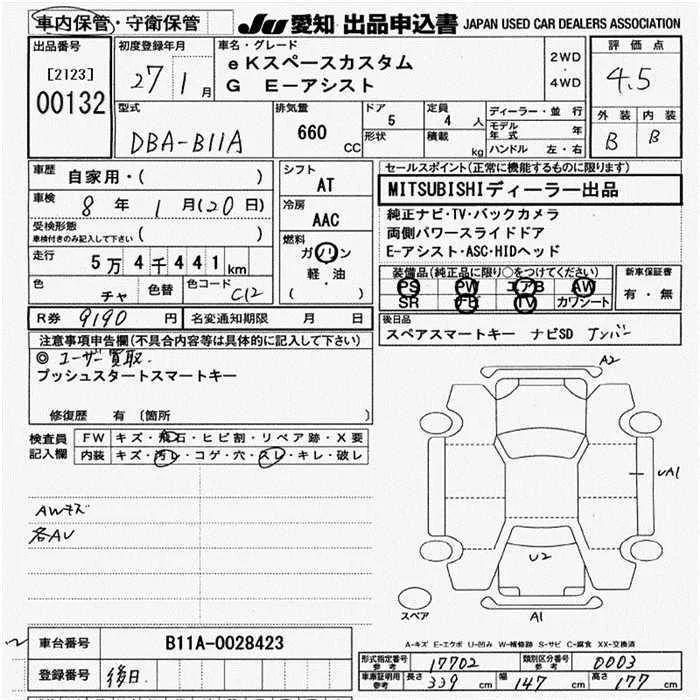 車内保管・守衛保管 JU 愛知 出品申込書 JAPAN USED CAR DEALERS ASSOCIATION
出品番号 初度登録年月 車名・グレード 評価点
[2123] 27 1 月 eKスペースカスタム 2WD 4.5
00132 G E−アシスト 4WD
型式 排気量 ドア 5 定員 4 人 ディーラー・並行 外装 内装
DBA-B11A 660 CC 形状 積載 kg モデル年式 年 B B
ハンドル 左・右
車歴 自家用・( ) シフト AT セールスポイント(正常に機能するものに限ります)
車検 8 年 1 月(20 日) 冷房 AAC MITSUBISHIディーラー出品
受検形態 純正ナビ・TV・バックカメラ
車検付きのみ記入して下さい( ) 燃料 両側パワースライドドア
走行 5万4千441km ガソリン E−アシスト・ASC・HIDヘッド
色 チャ 色替 色コード C12 軽・油 ( ) 装備品(純正品に限り○をつけてください) 新車保証書
PS PW エアB AW 有・無
SR ナビ TV カワシート
R券 9190 円 名変通知期限 月 日 後日品
注意事項申告欄(不具合内容等は具体的に記入して下さい) スペアスマートキー ナビSD Tンバー
◎ ユーザー買取.
プッシュスタートスマートキー
修復歴 有 (箇所 )
検査員 FW キズ・飛石・ヒビ割・リペア跡・X要
記入欄 内装 キズ・汚レ・コゲ・穴・スレ・キレ・破レ
A2
UA1
AWキズ
各AU
U2
スペア A1
A-キズ E-エクボ U-凹み W-補修跡 S-サビ C-腐食 XX-交換済
車台番号 B11A-0028423
登録番号 後日
形式指定番号 参考 17702 類別区分番号 参考 0003
車庫証明用 参考 長さ 339 cm 幅 147 cm 高さ 177 cm